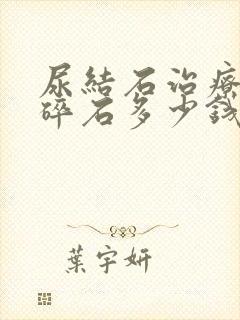 尿結石治療
碎石多少錢
葉宇妍